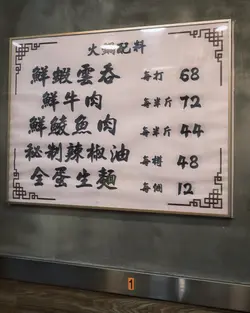 火鍋配料
鮮蝦雲吞 每打 68
鮮牛肉 每半斤 72
鮮鯪魚肉 每半斤 44
秘制辣椒油 每樽 48
全蛋生麵 每個 12
1